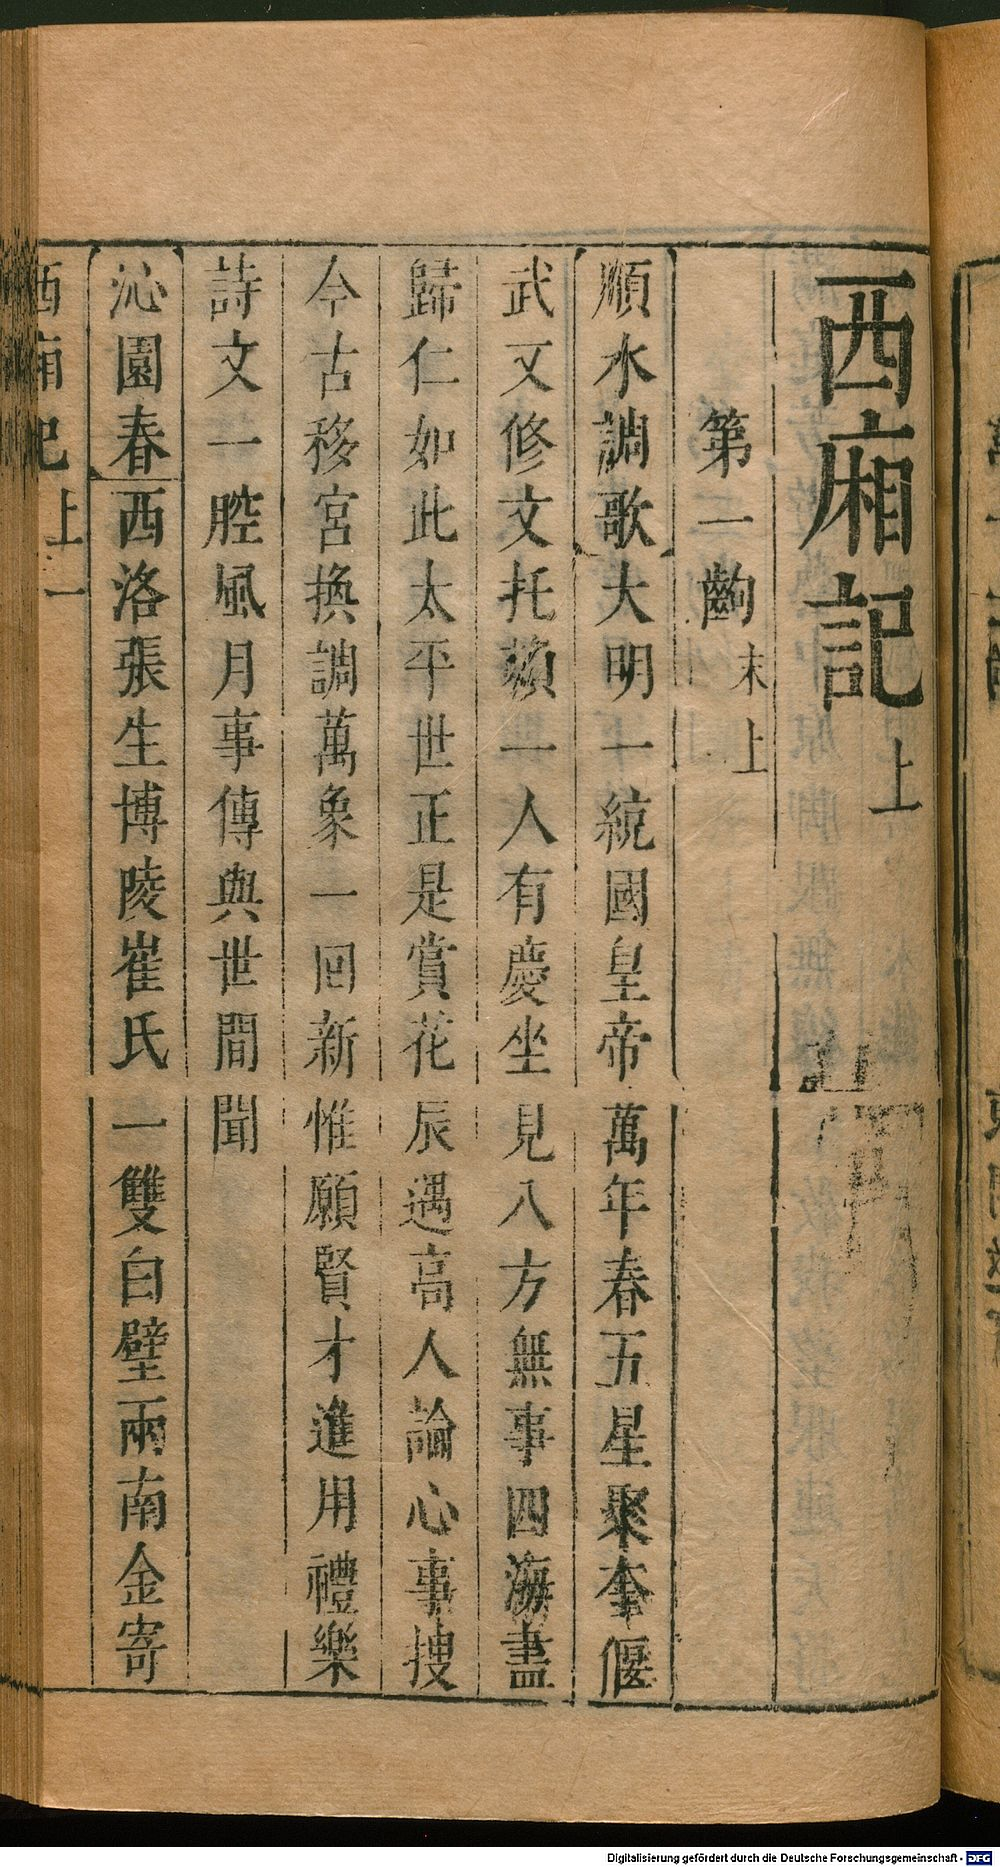 西廂記 上
第一齣 末上
順水調歌 大明一統國皇帝萬年春五星聚奎偃
武又修文托賴一人有慶坐見八方無事四海盡
歸仁如此太平世正是賞花辰遇高人論心事搜
今古移宮換調萬象一回新惟願賢才進用禮樂
詩文一腔風月事傳與世間聞
沁園春 西洛張生博陵崔氏一雙白璧兩南金寄
西廂記 上 一
Digitalisierung gefördert durch die Deutsche Forschungsgemeinschaft - DFG